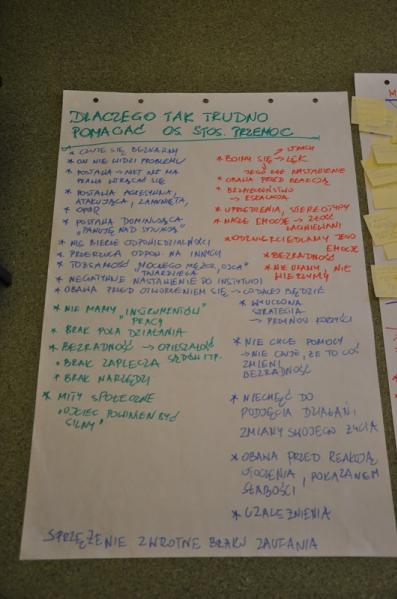 DLACZEGO TAK TRUDNO
POMAGAĆ OS. STOS. PRZEMOC
* CZUJE SIĘ BEZKARNY
* ON NIE WIDZI PROBLEMU
* POSTAWA → NIKT NIE MA
PRAWA WTRĄCAĆ SIĘ
* POSTAWA AGRESYWNA,
ATAKUJĄCA, ZAMKNIĘTA,
* OPÓR
* POSTAWA DOMINUJĄCA
"PANUJĘ NAD SYTUACJĄ"
* NIE BIERZE ODPOWIEDZIALNOŚCI
* PRZERZUCA ODPOW. NA INNYCH
* TOŻSAMOŚĆ "MOCNEGO MĘŻCZ., OJCA"
TWARDZIELA
* NEGATYWNE NASTAWIENIE DO INSTYTUCJI
* OBAWA PRZED OTWORZENIEM SIĘ → CO DALEJ BĘDZIE
* NIE MAMY "INSTRUMENTÓW"
PRACY
* BRAK POLA DZIAŁANIA
* BEZRADNOŚĆ → OPIESZAŁOŚĆ
SĄDÓW ITP.
* BRAK ZAPLECZA
* BRAK NARZĘDZI
* MITY SPOŁECZNE
"OJCIEC POWINIEN BYĆ
SILNY"
* BOIMY SIĘ → LĘK
JEGO ZŁE NASTAWIENIE
* OBAWA PRZED REAKCJĄ
* BEZPIECZEŃSTWO
→ ESKALACJA
* UPRZEDZENIA, STEREOTYPY
* NASZE EMOCJE → ZŁOŚĆ
* ODZWIERCIEDLAMY JEGO
EMOCJE
* BEZRADNOŚĆ
* NIE UFAMY, NIE
WIERZYMY
* WYUCZONA
STRATEGIA
* NIE CHCE POMOCY
→ NIE CZUJE, ŻE TO COŚ
ZMIENI
BEZRADNOŚĆ
* NIECHĘĆ DO
PODJĘCIA DZIAŁAŃ,
ZMIANY SWOJEGO ŻYCIA
* OBAWA PRZED REAKCJĄ
OTOCZENIA, POKAZANIEM
SŁABOŚCI
* UZALEŻNIENIA
SPRZĘŻENIE ZWROTNE BRAKU ZAUFANIA